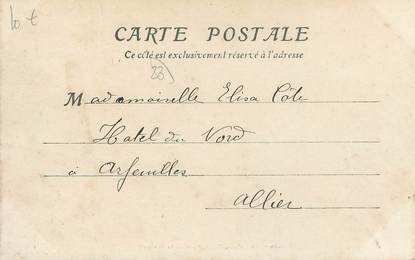 10 t
CARTE POSTALE
Ce côté est exclusivement réservé à l'adresse
23)
Mademoiselle Elisa Côte
Hotel du Nord
à Arfeuilles
Allier